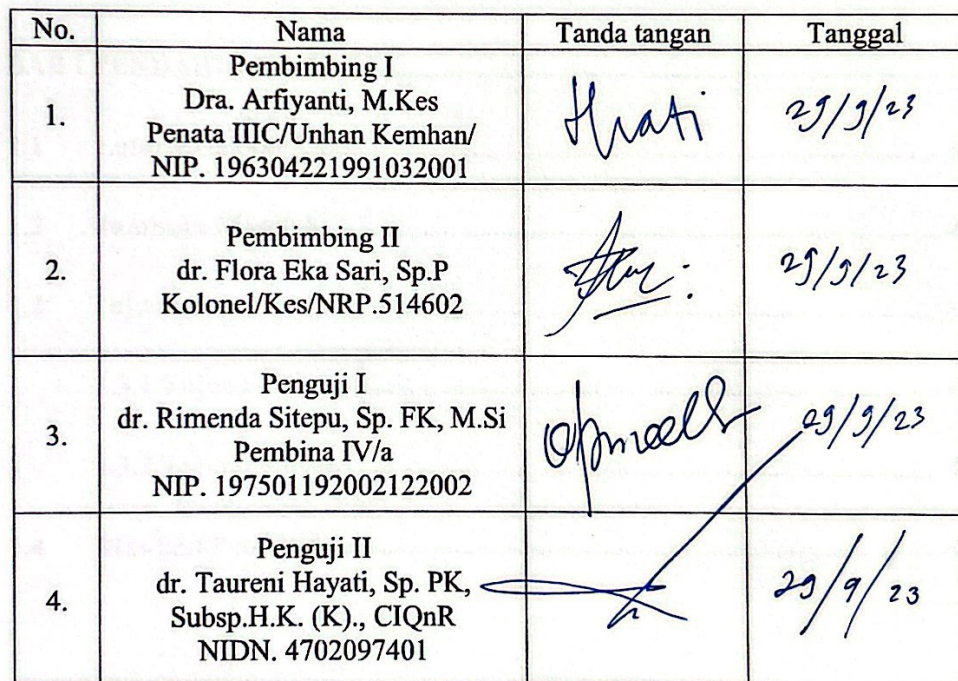 No. Nama Tanda tangan Tanggal
Pembimbing I
1. Dra. Arfiyanti, M.Kes 29/9/23
Penata IIIC/Unhan Kemhan/
NIP. 196304221991032001
Pembimbing II
2. dr. Flora Eka Sari, Sp.P 29/9/23
Kolonel/Kes/NRP.514602
Penguji I
dr. Rimenda Sitepu, Sp. FK, M.Si 29/9/23
3. Pembina IV/a
NIP. 197501192002122002
Penguji II
dr. Taureni Hayati, Sp. PK,
4. Subsp.H.K. (K)., CIQnR 29/9/23
NIDN. 4702097401